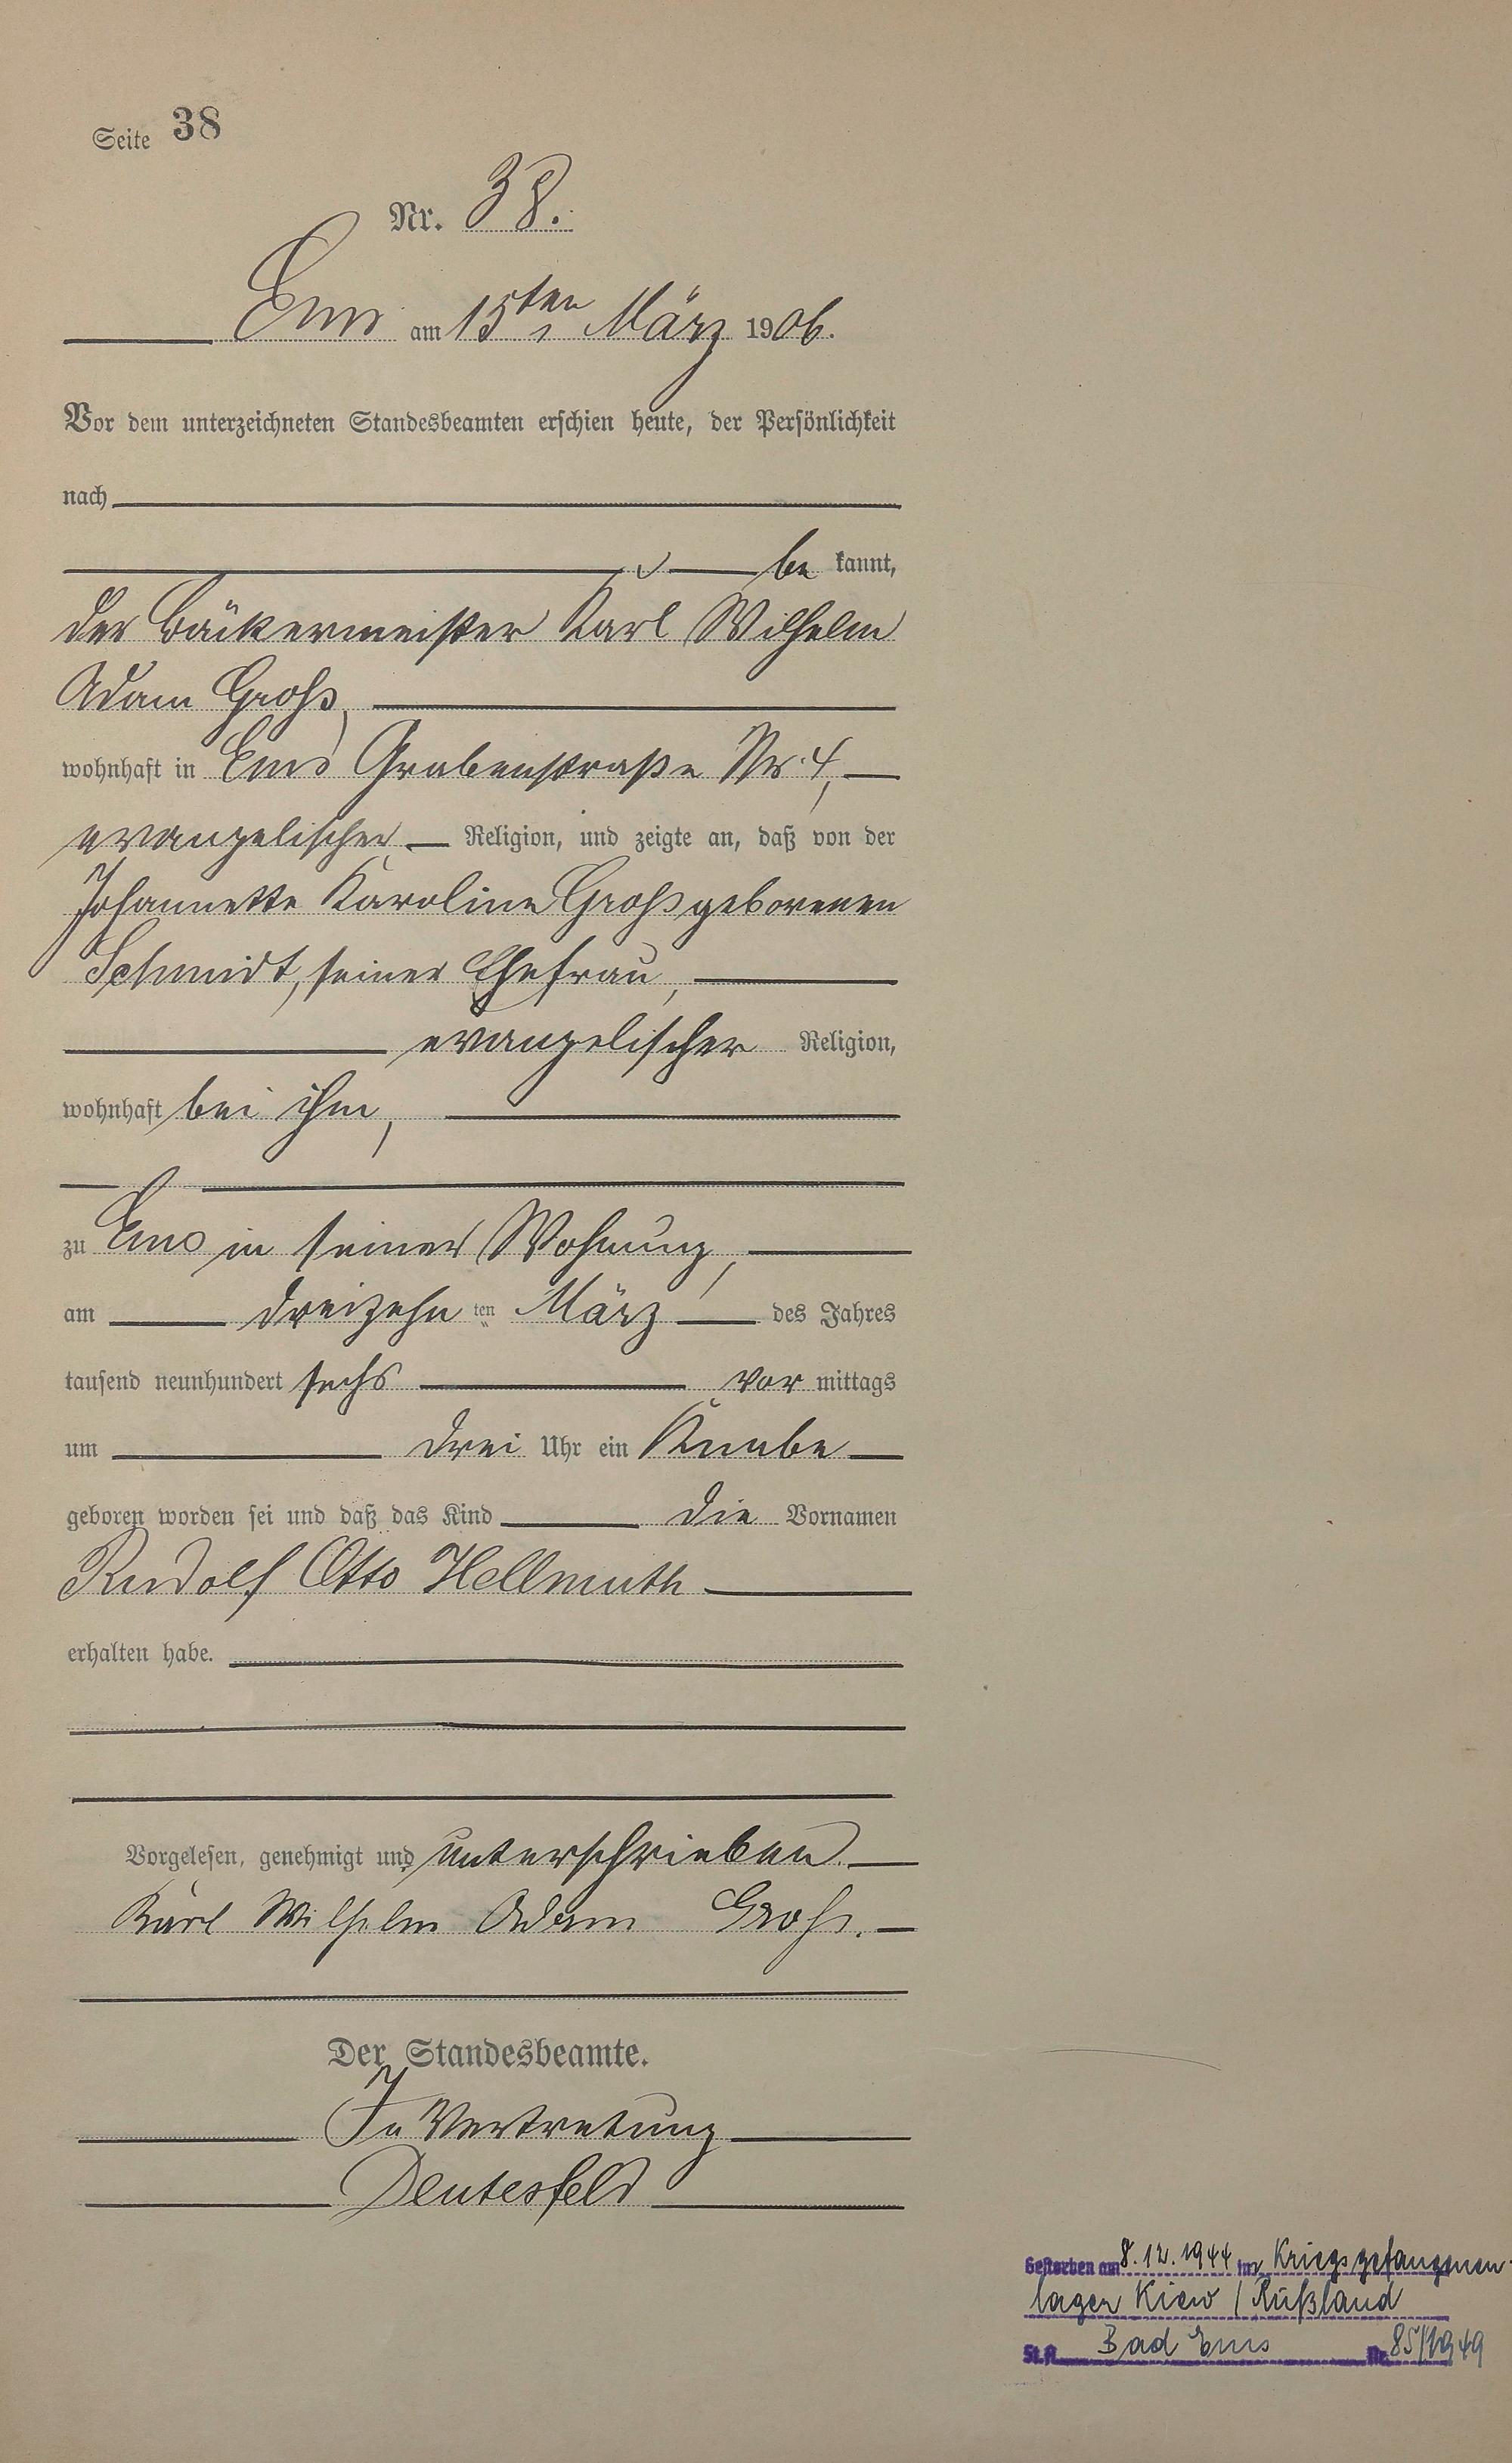 Seite 38
Nr. 38.
Ems am 15ten März 1906.
Vor dem unterzeichneten Standesbeamten erschien heute, der Persönlichkeit
nach
be kannt,
der Bäckermeister Karl Wilhelm
Adam Groß,
wohnhaft in Ems Grabenstraße Nr. 4,
evangelischer Religion, und zeigte an, daß von der
Johannette Karoline Groß geborenen
Schmidt, seiner Ehefrau,
evangelischer Religion,
wohnhaft bei ihm,
zu Ems in seiner Wohnung,
am dreizehn ten März des Jahres
tausend neunhundert sechs vor mittags
um drei Uhr ein Knabe
geboren worden sei und daß das Kind die Vornamen
Rudolf Otto Hellmuth
erhalten habe.
Vorgelesen, genehmigt und unterschrieben.
Karl Wilhelm Adam Groß.
Der Standesbeamte.
In Vertretung
Deutesfeld
Gestorben am 8.12.1944 im Kriegsgefangenen-
lager Kiew / Rußland
St.A. Bad Ems Nr. 85/1949